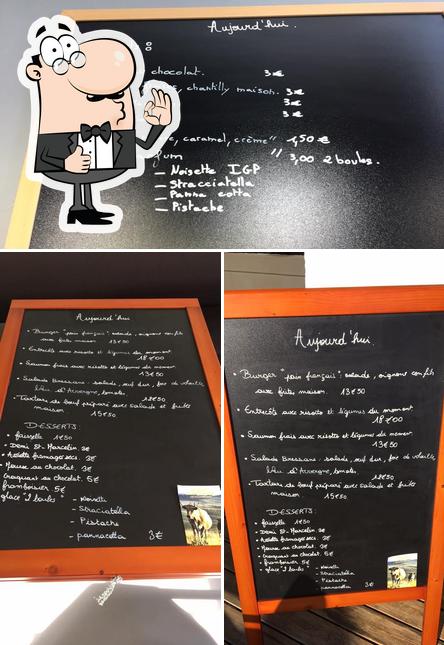 Aujourd'hui.
chocolat. 3€
, chantilly maison. 3€
3€
3€
, caramel, crème" 1,50 €
" 3,00 2 boules.
– Noisette IGP
– Stracciatella
– Panna cotta
– Pistache
Aujourd'hui
• Burger "pain français": salade, oignons confits
aux frites maison. 13€50
• Entrecôte avec risotto et légumes du moment
18€00
• Saumon frais avec risotto et légumes du moment
13€50
• Salade Bressane: salade, œuf dur, foie de volaille
bleu d'Auvergne, tomates. 12€50
• Tartare de bœuf préparé avec salade et frites
maison 15€50
DESSERTS:
• faisselle 1€50
• Demi St-Marcellin. 2€
• Assiette fromages secs. 3€
• Mousse au chocolat. 3€
• Croquant au chocolat. 5€
• framboisier. 5€
• glace "2 boules" - Noisette
- Straciatella
- Pistache
- pannacotta 3€
Aujourd'hui.
• Burger "pain français": salade, oignons confits
aux frites maison. 13€50
• Entrecôte avec risotto et légumes du moment
18€00
• Saumon frais avec risotto et légumes du moment
13€50
• Salade Bressane: salade, œuf dur, foie de volaille
bleu d'Auvergne, tomates. 12€50
• Tartare de bœuf préparé avec salade et frites
maison 15€50
DESSERTS:
• faisselle 1€50
• Demi St-Marcellin. 2€
• Assiette fromages secs. 3€
• Mousse au chocolat. 3€
• Croquant au chocolat. 5€
• framboisier. 5€
• glace "2 boules" - Noisette
- Straciatella
- Pistache
- pannacotta 3€